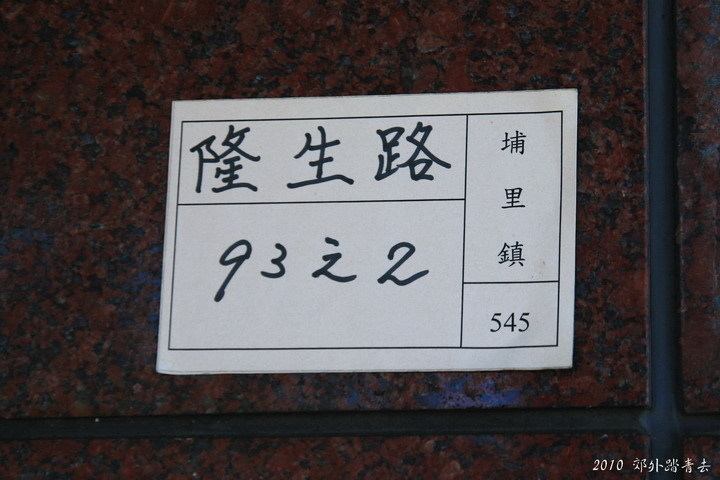 隆生路
93之2
埔里鎮
545
2010 郊外踏青去